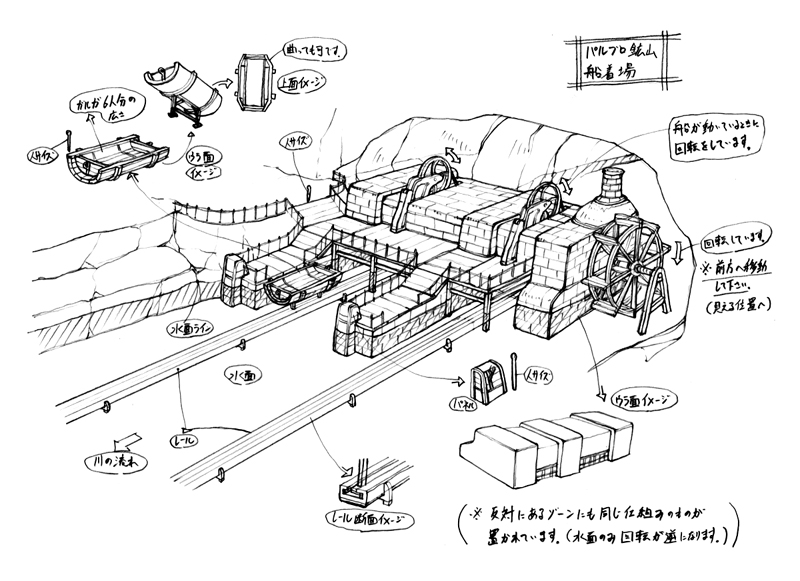 パルブロ鉱山
船着場
曲っても可です。
上面イメージ
ガルガ6人分の
広さ
人サイズ
うら面
イメージ
人サイズ
船が動いているときに
回転をしています。
回転しています。
※ 前方へ移動
して下さい。
(見える位置へ)
水面ライン
水面
レール
川の流れ
パネル
人サイズ
ウラ面イメージ
レール断面イメージ
(※ 反対にあるゾーンにも同じ仕組みのものが
置かれています。(水面のみ回転が逆になります。))